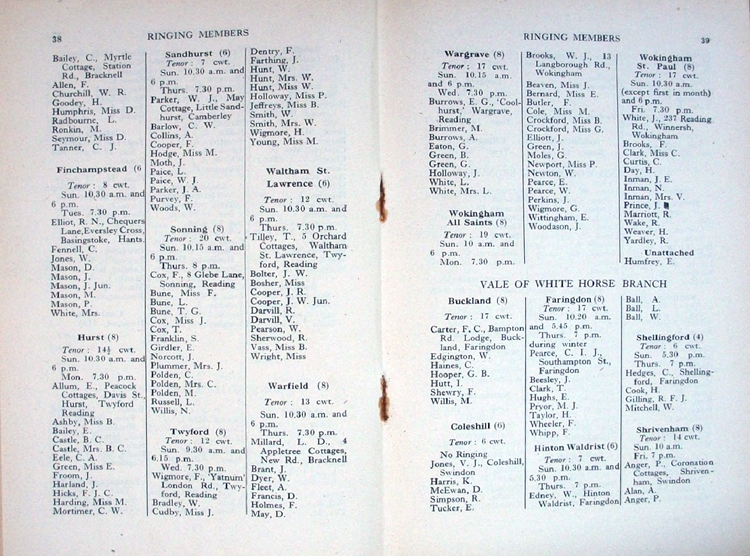 38
RINGING MEMBERS
Bailey, C., Myrtle
Cottage, Station
Rd., Bracknell
Allen, F.
Churchill, W. R.
Goodey, H.
Humphris, Miss D.
Radbourne, L.
Ronkin, M.
Seymour, Miss D.
Tanner, C. J.
Finchampstead (6
Tenor : 8 cwt.
Sun. 10.30 a.m. and
6 p.m.
Tues. 7.30 p.m.
Elliot, R. N., Chequers
Lane, Eversley Cross,
Basingstoke, Hants
Fennell, C.
Jones, W.
Mason, D.
Mason, J.
Mason, J. Jun.
Mason, M.
Mason, P.
White, Mrs.
Hurst (8)
Tenor : 14½ cwt.
Sun. 10.30 a.m. and
6 p.m.
Mon. 7.30 p.m.
Allum, E., Peacock
Cottages, Davis St.,
Hurst, Twyford
Reading
Ashby, Miss B.
Bailey, E.
Castle, B. C.
Castle, Mrs. B. C.
Eele, C. A.
Green, Miss E.
Froom, J.
Harland, J.
Hicks, F. J. C.
Harding, Miss M.
Mortimer, C. W.
Sandhurst (6)
Tenor : 7 cwt.
Sun. 10.30 a.m. and
6 p.m.
Thurs. 7.30 p.m.
Parker, W. J., May
Cottage, Little Sand-
hurst, Camberley
Barlow, C. W.
Collins, A.
Cooper, F.
Hodge, Miss M.
Moth, J.
Paice, L.
Paice, W. J
Parker, J. A.
Purvey, F.
Woods, W.
Sonning (8)
Tenor : 20 cwt.
Sun. 10.15 a.m. and
6 p.m.
Thurs. 8 p.m.
Cox, F., 8 Glebe Lane,
Sonning, Reading
Bune, Miss F.
Bune, L.
Bune, T. G.
Cox, Miss J.
Cox, T.
Franklin, S.
Girdler, E.
Norcott, J.
Plummer, Mrs. J.
Polden, C.
Polden, Mrs. C.
Polden, M.
Russell, L.
Willis, N.
Twyford (8)
Tenor : 12 cwt.
Sun. 9.30 a.m. and
6.15 p.m.
Wed. 7.30 p.m.
Wigmore, F., 'Yatnum'
London Rd., Twy-
ford, Reading
Bradley, W.
Cudby, Miss J.
Dentry, F.
Farthing, J.
Hunt, W.
Hunt, Mrs. W.
Hunt, Miss W.
Holloway, Miss P.
Jeffreys, Miss B.
Smith, W.
Smith, Mrs. W.
Wigmore, H.
Young, Miss M.
Waltham St.
Lawrence (6)
Tenor : 12 cwt.
Sun. 10.30 a.m. and
6 p.m.
Thurs. 7.30 p.m.
Tilley, T., 5 Orchard
Cottages, Waltham
St. Lawrence, Twy-
ford, Reading
Bolter, J. W.
Bosher, Miss
Cooper, J. R.
Cooper, J. W. Jun.
Darvill, R.
Darvill, V.
Pearson, W.
Sherwood, R.
Vass, Miss B.
Wright, Miss
Warfield (8)
Tenor : 13 cwt.
Sun. 10.30 a.m. and
6 p.m.
Thurs. 7.30 p.m.
Millard, L. D., 4
Appletree Cottages,
New Rd., Bracknell
Brant, J.
Dyer, W.
Fleet, A.
Francis, D.
Holmes, F.
May, D.
RINGING MEMBERS
39
Wargrave (8)
Tenor : 17 cwt.
Sun. 10.15 a.m.
and 6 p.m.
Wed. 7.30 p.m.
Burrows, E. G., 'Cool-
hurst,' Wargrave,
Reading
Brimmer, M.
Burrows, A.
Eaton, G.
Green, B.
Green, G.
Holloway, J.
White, L.
White, Mrs. L.
Wokingham
All Saints (8)
Tenor : 19 cwt.
Sun. 10 a.m. and
6 p.m.
Mon. 7.30 p.m.
Brooks, W. J., 13
Langborough Rd.,
Wokingham
Beaven, Miss J.
Bernard, Miss E.
Butler, F.
Cole, Miss M.
Crockford, Miss B.
Crockford, Miss G.
Elliott, J.
Green, J.
Moles, G.
Newport, Miss P.
Newton, W.
Pearce, E.
Pearce, W.
Perkins, J.
Wigmore, G.
Whittingham, E.
Woodason, J.
Wokingham
St. Paul (8)
Tenor : 17 cwt.
Sun. 10.30 a.m.
(except first in month)
and 6 p.m.
Fri. 7.30 p.m.
White, J., 237 Reading
Rd., Winnersh,
Wokingham
Brooks, F.
Clark, Miss C.
Curtis, C.
Day, H.
Inman, J. E.
Inman, N.
Inman, Mrs. V.
Prince, J.
Marriott, R.
Wake, R.
Weaver, H.
Yardley, R.
Unattached
Humfrey, E.
VALE OF WHITE HORSE BRANCH
Buckland (8)
Tenor : 17 cwt.
Carter, F. C., Bampton
Rd. Lodge, Buck-
land, Faringdon
Edgington, W.
Haines, C.
Hooper, G. B.
Hutt, I.
Shewry, F.
Willis, M.
Coleshill (6)
Tenor : 6 cwt.
No Ringing
Jones, V. J., Coleshill,
Swindon
Harris, K.
McEwan, D.
Simpson, R.
Tucker, E.
Faringdon (8)
Tenor : 17 cwt.
Sun. 10.20 a.m.
and 5.45 p.m.
Thurs. 7 p.m.
during winter
Pearce, C. I. J.,
Southampton St.,
Faringdon
Beesley, J.
Clark, T.
Hughes, E.
Pryor, M. J.
Taylor, H.
Wheeler, F.
Whipp, F.
Hinton Waldrist (6)
Tenor : 7 cwt.
Sun. 10.30 a.m. and
5.30 p.m.
Thurs. 7 p.m.
Edney, W., Hinton
Waldrist, Faringdon
Ball, A.
Ball, L.
Ball, W.
Shellingford (4)
Tenor : 6 cwt.
Sun. 5.30 p.m.
Thurs. 7 p.m.
Hedges, C., Shelling-
ford, Faringdon
Cook, H.
Gilling, R. F. J.
Mitchell, W.
Shrivenham (8)
Tenor : 14 cwt.
Sun. 10 a.m.
Fri. 7 p.m.
Anger, P., Coronation
Cottages, Shriven-
ham, Swindon
Alan, A.
Anger, P.